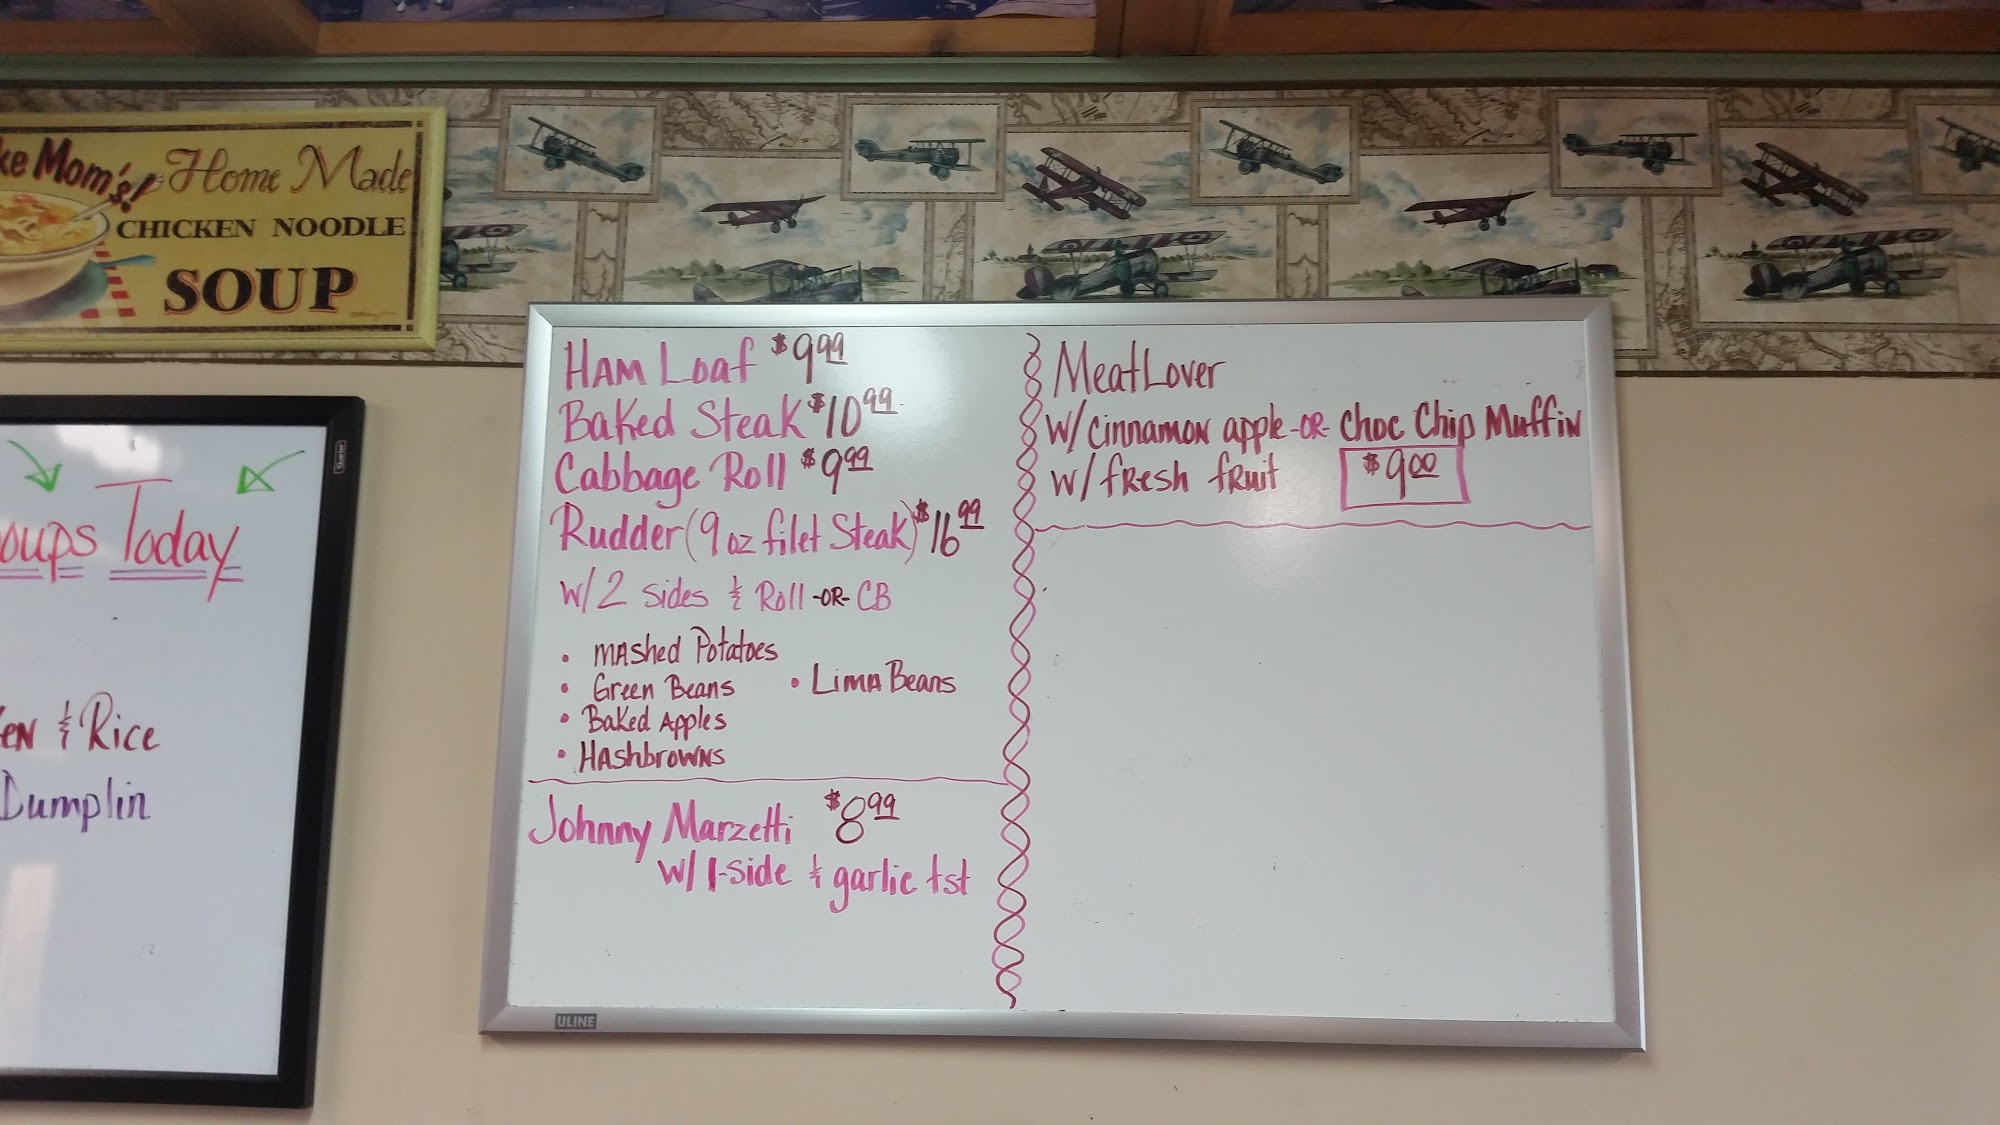 Mom's! Home Made
CHICKEN NOODLE
SOUP
Today
& Rice
Dumplin
Ham Loaf $9.99
Baked Steak $10.99
Cabbage Roll $9.99
Rudder (9 oz filet Steak) $16.99
w/2 sides & Roll -OR- CB
• Mashed Potatoes
• Green Beans • Lima Beans
• Baked Apples
• Hashbrowns
Johnny Marzetti $8.99
w/ 1-side & garlic tst
MeatLover
w/ cinnamon apple -OR- Choc Chip Muffin
w/ fresh fruit $9.00
ULINE